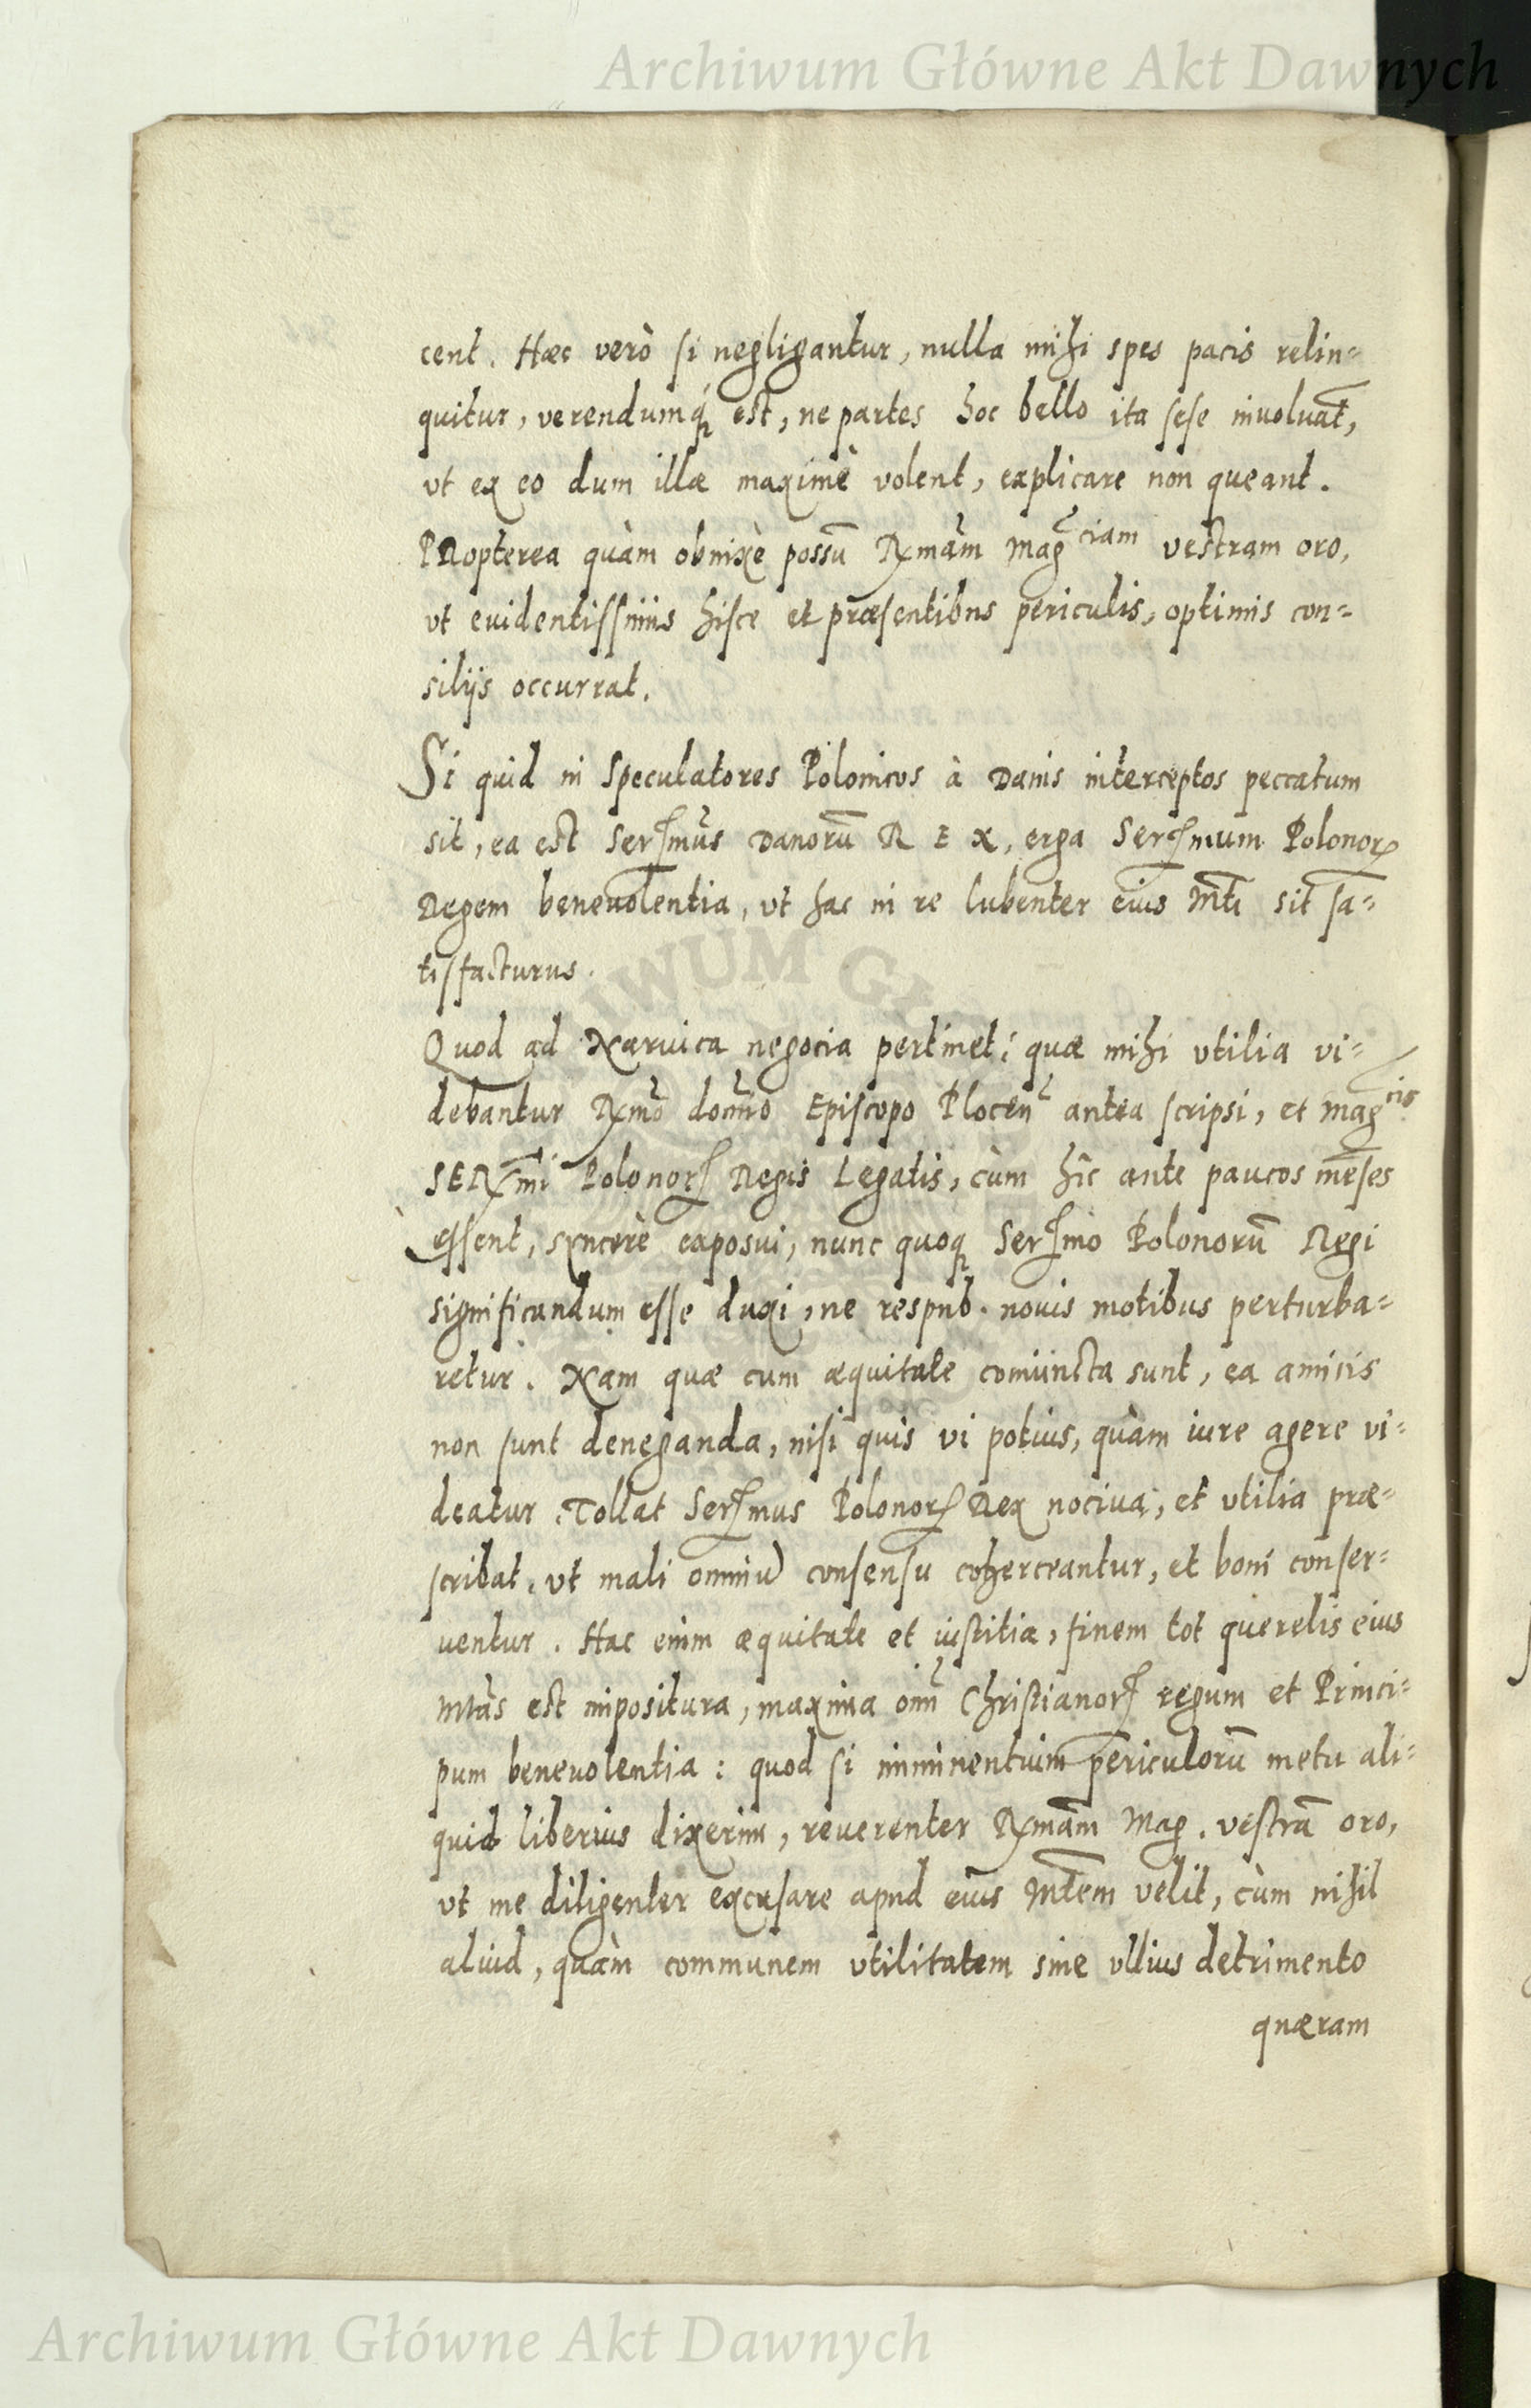 Archiwum Główne Akt Dawnych
cent. Hæc verò si negligantur, nulla mihi spes pacis relin=
quitur, verendumq́ est, ne partes hoc bello ita sese inuoluāt,
vt ex eo dum illæ maximè volent, explicare non queant.
PRopterea quàm obnixè possū Rmām Mag̃ciam vestram oro,
vt euidentissimis hisce et præsentibus periculis, optimis con=
silijs occurrat.
Si quid in Speculatores Polonicos à Danis interceptos peccatum
sit, ea est Sermũs Danorū REX, erga Sermum Polonoꝝ
Regem beneuolentia, vt hac in re lubenter eius Mti sit sa=
tisfacturus.
Quod ad Naruica negocia pertinet: quæ mihi vtilia vi=
debantur Rmõ domino Episcopo Plocen̄ antea scripsi, et Mag̃cis
SERmi Polonorꝝ Regis Legatis, cùm hîc ante paucos mēses
essent, syncerè exposui, nunc quoq Sermo Polonorū Regi
significandum esse duxi, ne respub. nouis motibus perturba=
retur. Nam quæ cum æquitate coniuncta sunt, ea amicis
non sunt deneganda, nisi quis vi potius, quàm iure agere vi=
deatur. Tollat Sermus Polonorꝝ Rex nociua, et vtilia præ=
scribat, vt mali omniū consensu coherceantur, et boni conser=
uentur. Hac enim æquitate et iustitia, finem tot querelis eius
Mtãs est impositura, maxima oim̄ Christianorꝝ regum et Princi=
pum beneuolentia: quod si imminentium periculorū metu ali=
quid liberius dixerim, reuerenter Rmām Mag. vestrā oro,
vt me diligenter excusare apud eius Mtem velit, cùm nihil
aliud, quàm communem vtilitatem sine vllius detrimento
quæram
Archiwum Główne Akt Dawnych